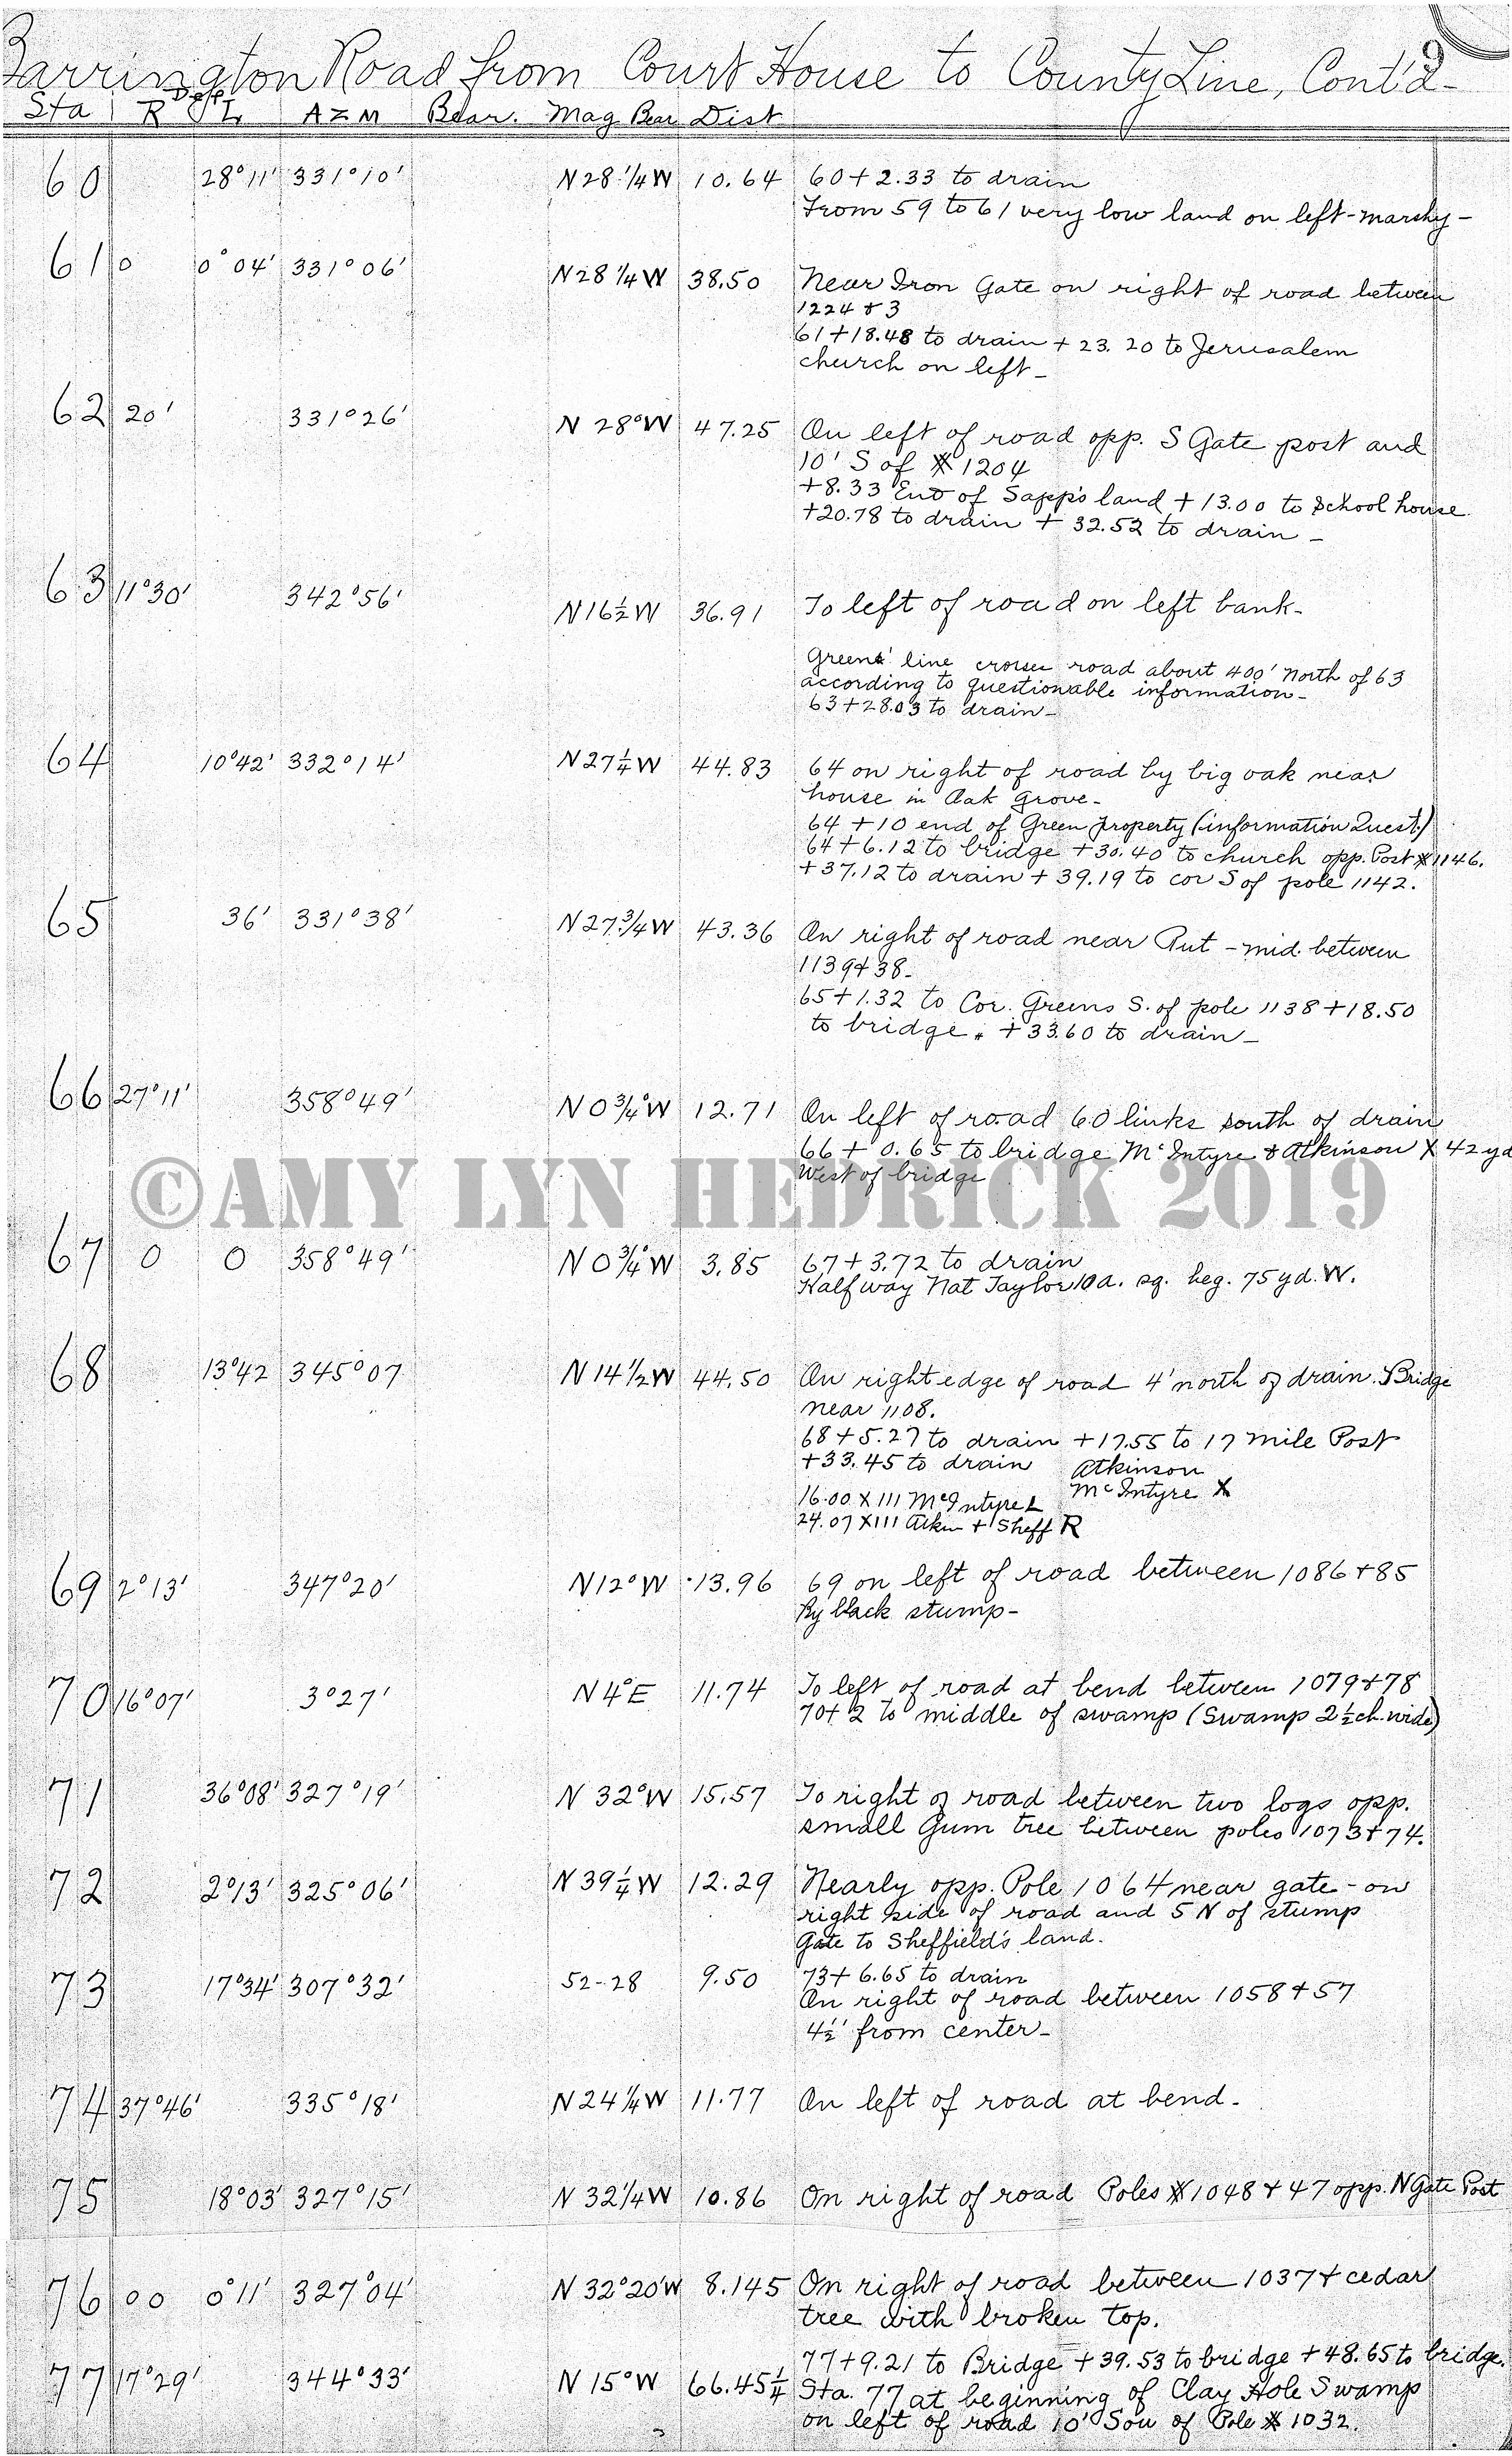 9
Barrington Road from Court House to County Line, Cont'd-
Sta R Defl L AZM Bear. Mag Bear Dist
60 28°11' 331°10' N28 1/4 W 10.64 60+2.33 to drain
From 59 to 61 very low land on left-marshy-
61 0 0°04' 331°06' N28 1/4 W 38.50 Near Iron Gate on right of road between
1224 & 3
61+18.48 to drain + 23.20 to Jerusalem
church on left-
62 20' 331°26' N 28°W 47.25 On left of road opp. S Gate post and
10' S of # 1204
+8.33 End of Sapp's land + 13.00 to School house
+20.78 to drain + 32.52 to drain -
63 11°30' 342°56' N16 1/2 W 36.91 To left of road on left bank-
Greens' line crosses road about 400' North of 63
according to questionable information-
63+28.03 to drain-
64 10°42' 332°14' N27 1/4 W 44.83 64 on right of road by big oak near
house in Oak Grove-
64+10 end of Green property (information Quest.)
64+6.12 to bridge +30.40 to church opp. Post #1146.
+37.12 to drain + 39.19 to cor S of pole 1142.
65 36' 331°38' N27 3/4 W 43.36 On right of road near Put - mid. between
1139 & 38-
65+1.32 to Cor. Greens S. of pole 1138 +18.50
to bridge. +33.60 to drain-
66 27°11' 358°49' N 0 3/4° W 12.71 On left of road 60 links south of drain
66 + 0.65 to bridge McIntyre & Atkinson X 42 yd
West of bridge
©AMY LYN HEDRICK 2019
67 0 0 358°49' N 0 3/4° W 3.85 67+3.72 to drain
Half way Nat Taylor 10 a. sq. beg. 75 yd. W.
68 13°42 345°07 N 14 1/2 W 44.50 On right edge of road 4' north of drain. Bridge
near 1108.
68+5.27 to drain +17.55 to 17 mile Post
+33.45 to drain Atkinson
McIntyre X
16.00 X 111 McIntyre L
24.07 X111 Atkin + Sheff R
69 2°13' 347°20' N12°W 13.96 69 on left of road between 1086 & 85
By black stump-
70 16°07' 3°27' N 4°E 11.74 To left of road at bend between 1079 & 78
70+2 to middle of swamp (Swamp 2 1/2 ch. wide)
71 36°08' 327°19' N 32°W 15.57 To right of road between two logs opp.
small Gum tree between poles 1073 & 74.
72 2°13' 325°06' N 39 1/4 W 12.29 Nearly opp. Pole 1064 near gate - on
right side of road and 5 N of stump
Gate to Sheffield's land.
73 17°34' 307°32' 52-28 9.50 73+ 6.65 to drain
On right of road between 1058 & 57
4 1/2' from center-
74 37°46' 335°18' N 24 1/4 W 11.77 On left of road at bend-
75 18°03' 327°15' N 32 1/4 W 10.86 On right of road Poles #1048 & 47 opp. N Gate Post
76 00 0°11' 327°04' N 32°20'W 8.145 On right of road between 1037 & cedar
tree with broken top.
77+9.21 to Bridge +39.53 to bridge +48.65 to bridge.
77 17°29' 344°33' N 15°W 66.45 1/4 Sta. 77 at beginning of Clay Hole Swamp
on left of road 10' Sou of Pole # 1032.